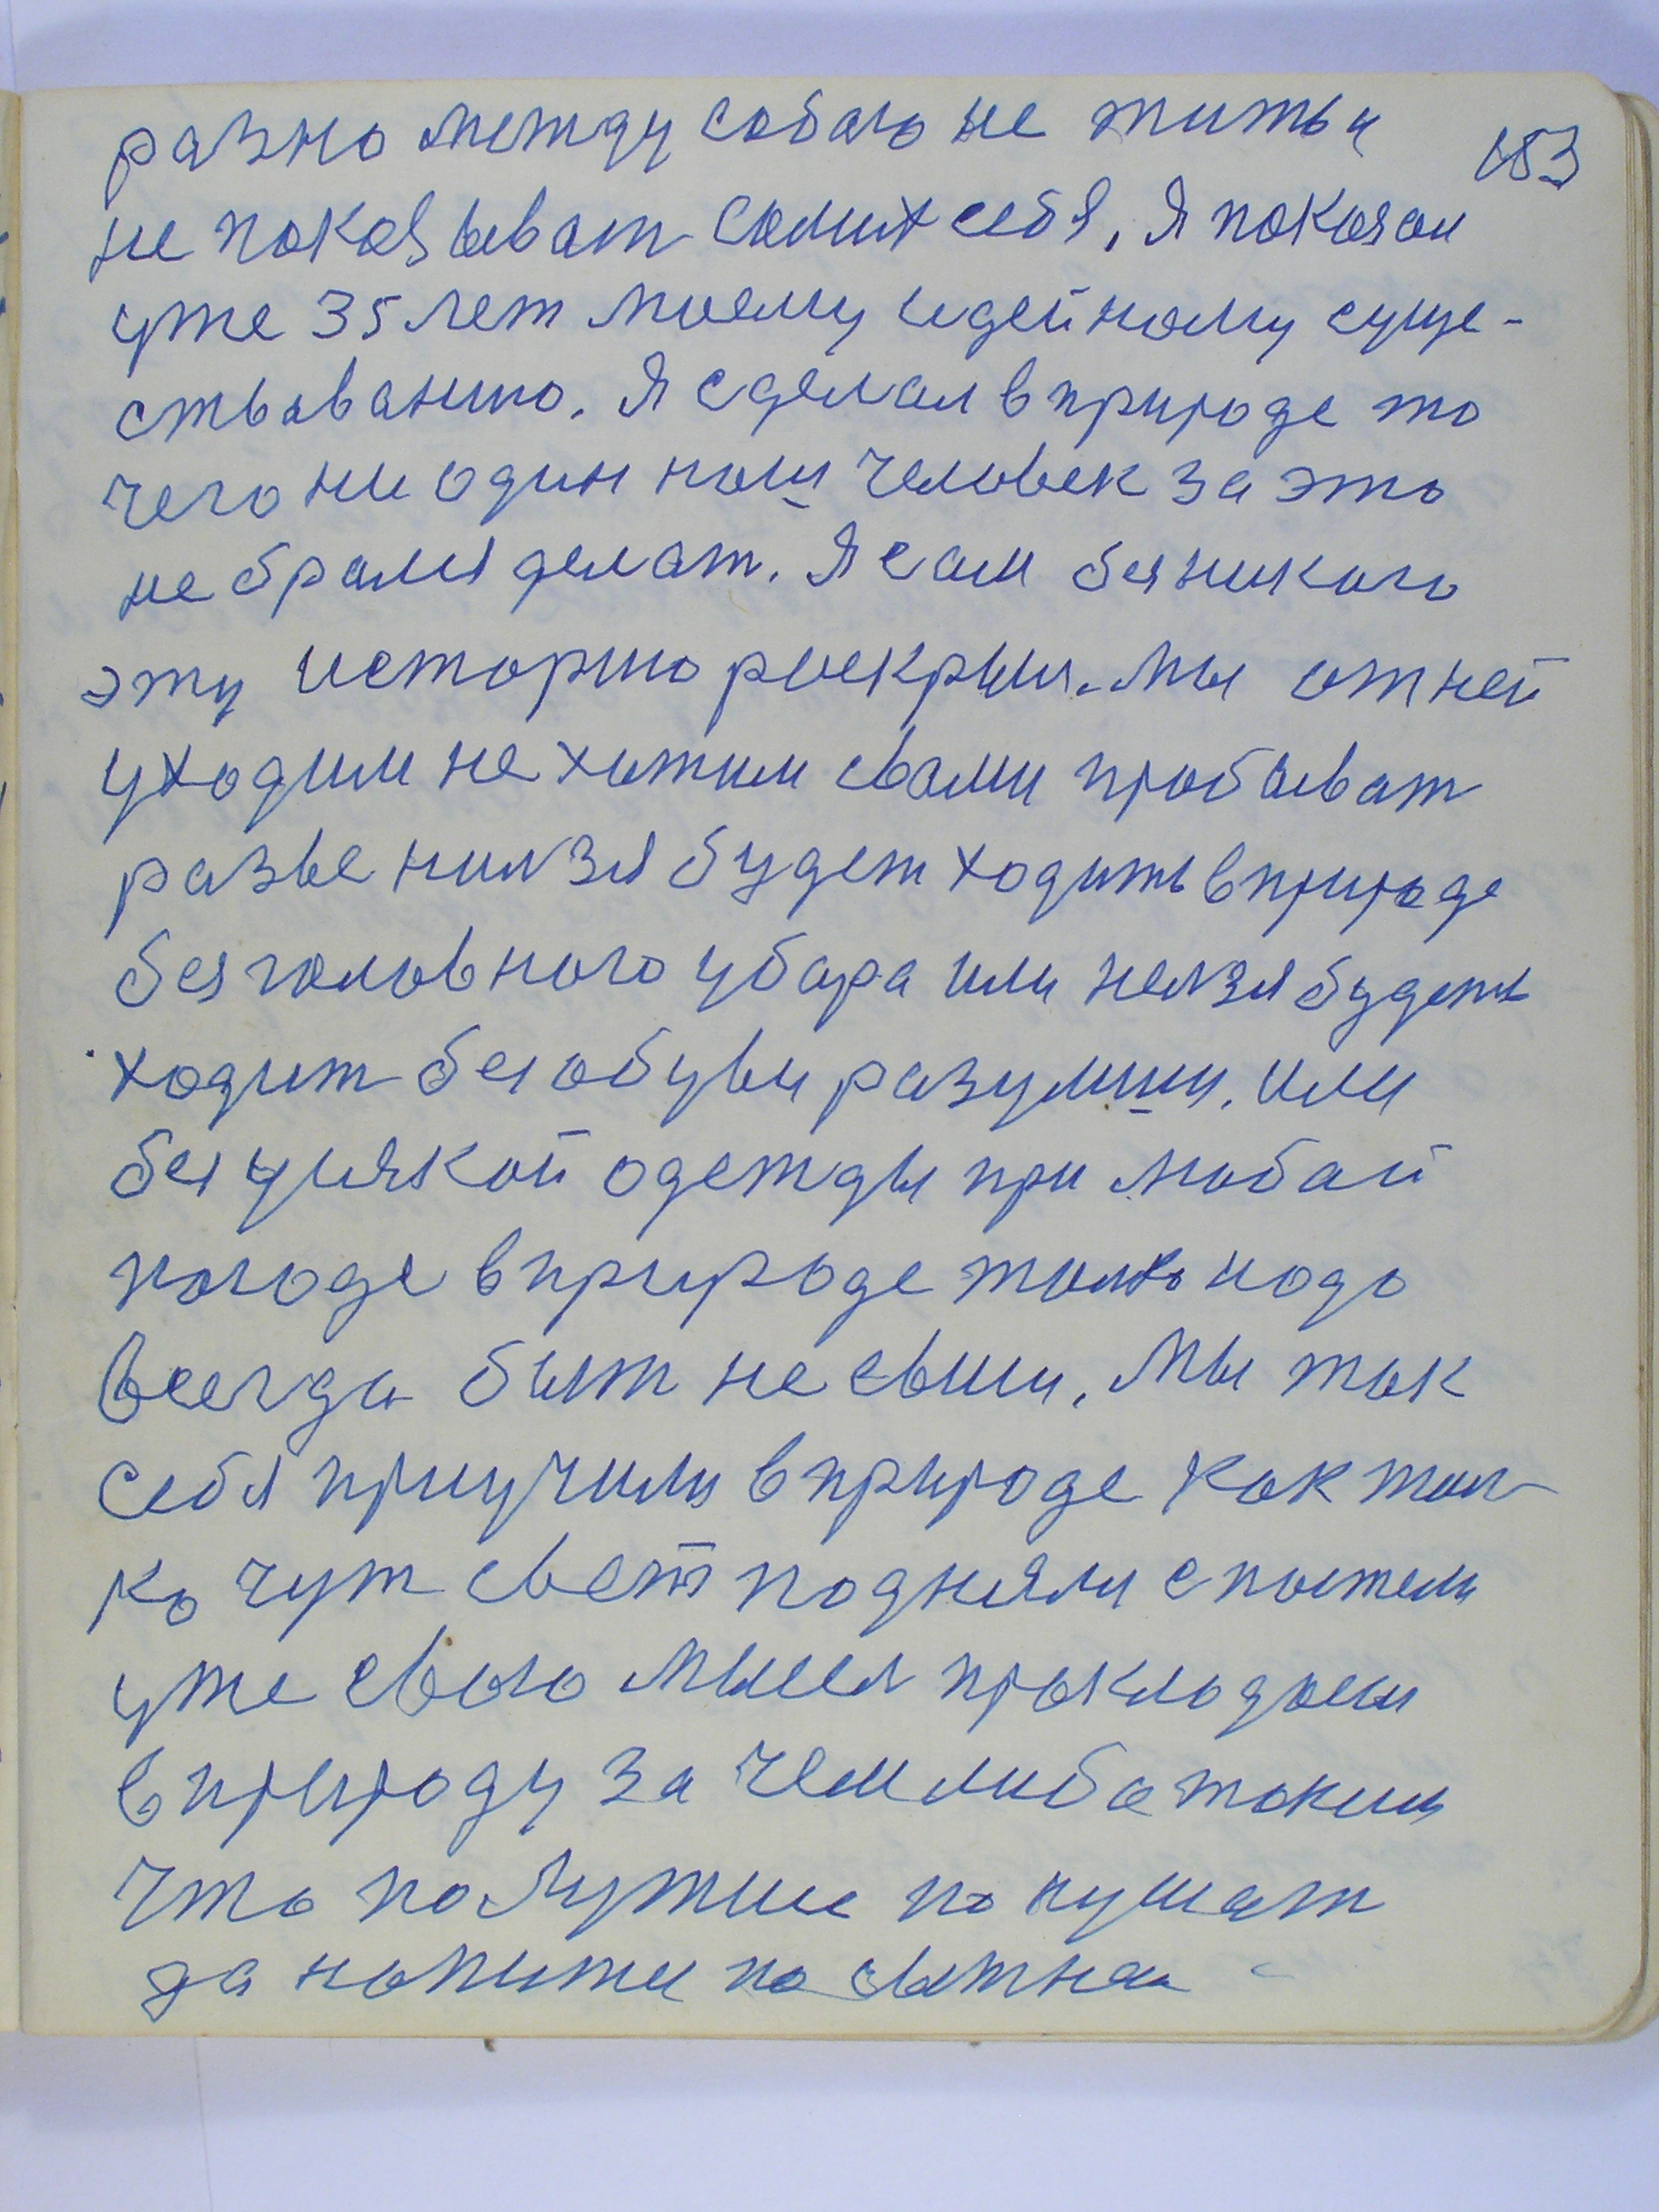 разно между собою не жить и
183
не показыват самих себя. Я показал
уже 35 лет моему идейному суще-
ствованию. Я сделал в природе то
чего ни один наш человек за это
не брался делат. Я сам без никого
эту историю раскрыл. Мы от ней
уходим не хотим свами пробыват
разве нилзя будет ходить в природе
без головного убора или нелзя будеть
ходит без обуви разумши. или
без усякой одежды при любой
погоде в природе только надо
всегда быт не свиш. Мы так
себя приучили в природе как тол-
ко чут свет подняли с постели
уже свою мысел прокладаем
в природу за чем либо таким
что получше покушат
да напитца по сытнея